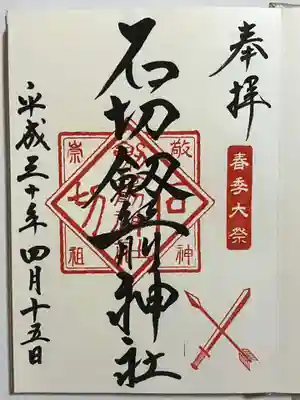 奉拝
春季大祭
石切劔箭神社
敬神
崇祖
平成三十年四月十五日